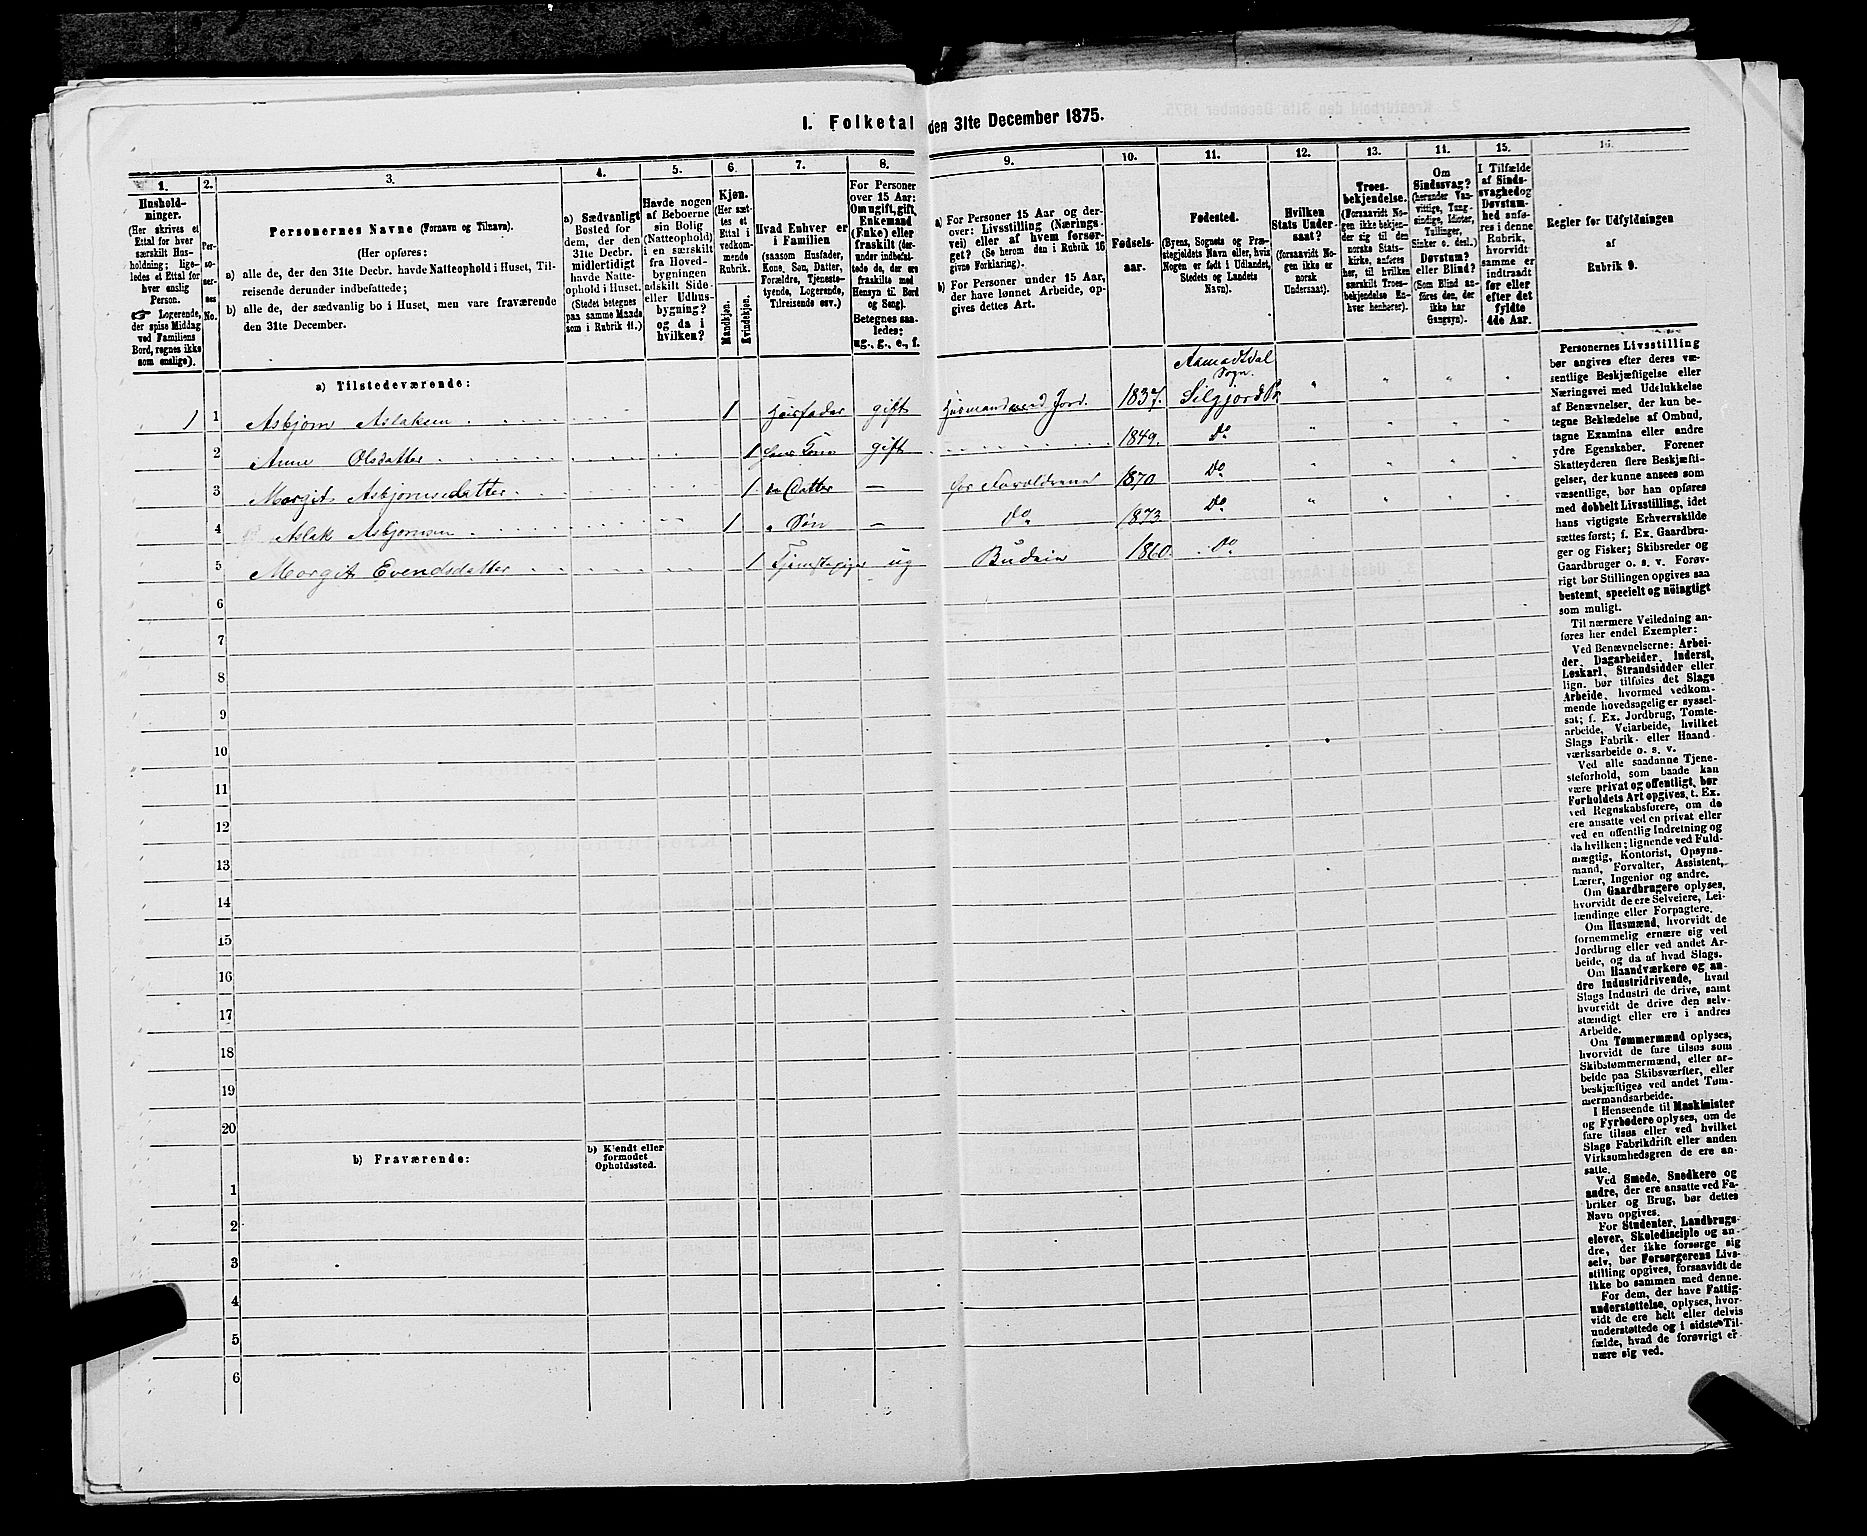 I. Folketal den 31te December 1875.
1.
Husholdninger.
(Her skrives et
Ettal for hver
særskilt Husholdning; ligeledes et Ettal for
hver enslig
Person.
☞ Logerende,
der spise Middag
ved Familiens
Bord, regnes ikke
som enslige).
2.
Personernes
No.
3.
Personernes Navne (Fornavn og Tilnavn).
(Her opføres:
a) alle de, der den 31te Decbr. havde Natteophold i Huset, Tilreisende derunder indbefattede;
b) alle de, der sædvanlig bo i Huset, men vare fraværende
den 31te December.
4.
a) Sædvanligt
Bosted for
dem, der den
31te Decbr.
midlertidigt
havde Natteophold i Huset.
(Stedet betegnes
paa samme Maade
som i Rubrik 11.)
5.
Havde nogen
af Beboerne
sin Bolig
(Natteophold)
i en særskilt
fra Hovedbygningen
adskilt Side-
eller Udhusbygning?
og da i
hvilken?
6.
Kjøn.
(Her sættes et
Ettal i
vedkommende
Rubrik.
Mandkjøn.
Kvindekjøn.
7.
Hvad Enhver er
i Familien
(saasom Husfader,
Kone, Søn, Datter,
Forældre, Tjenestetyende, Logerende,
Tilreisende osv.)
8.
For Personer
over 15 Aar:
Om ugift, gift,
Enkemand
(Enke) eller
fraskilt (derunder indbefattede de, der ere
fraskilte med
Hensyn til Bord
og Seng).
Betegnes saaledes:
ug., g., e., f.
9.
a) For Personer 15 Aar og derover: Livsstilling (Næringsvei) eller af hvem forsørget? (Se herom den i Rubrik 16
givne Forklaring).
b) For Personer under 15 Aar,
der have lønnet Arbeide, opgives dettes Art.
10.
Fødselsaar.
11.
Fødested.
(Byens, Sognets og Præstegjeldets Navn eller, hvis
Nogen er født i Udlandet,
Stedets og Landets
Navn).
12.
Hvilken
Stats Undersaat?
(forsaavidt Nogen ikke er
norsk
Undersaat).
13.
Troesbekjendelse.
(Forsaavidt Nogen ikke bekjender sig til den
norske Statskirke, anføres
her, til hvilken
særskilt Troesbekjendelse Enhver henhører).
14.
Om
Sindssvag?
(herunder Vanvittige, Tungsindige, Idioter,
Tullinger,
Sinker o. desl.)
Døvstum?
eller Blind?
(Som Blind anføres den, der
ikke har
Gangsyn).
15.
I Tilfælde
af Sindssvaghed og
Døvstumhed anføres i denne
Rubrik,
hvorvidt
samme er
indtraadt
før eller
efter det
fyldte
4de Aar.
16.
Regler for Udfyldningen
af
Rubrik 9.
a) Tilstedeværende:
Aamodtdal
Sogn.
1 1 Asbjørn Aslaksen 1 Husfader gift Husmand med Jord. 1837. Silgjord Pr
2 Anne Olsdatter 1 hans Kone gift 1849. Do
3 Margit Asbjørnsdatter 1 Datter — for Forældrene 1870 Do
4 Aslak Asbjørnsen 1 " Søn — Do 1873 Do
5 Margit Evendsdatter 1 Tjenstepige ug Budeie 1860. Do
6
7
8
9
10
11
12
13
14
15
16
17
18
19
20
b) Fraværende:
b) Kjendt eller
formodet
Opholdssted.
1
2
3
4
5
6
Personernes Livsstilling
bør angives efter deres væsentlige Beskjæftigelse eller
Næringsvei med Udelukkelse
af Benævnelser, der kun betegne Beklædelse af Ombud,
tagne Examina eller andre
ydre Egenskaber. Forener
Skatteyderen flere Beskjæftigelser, der kunne ansees som
væsentlige, bør han opføres
med dobbelt Livsstilling, idet
hans vigtigste Erhvervskilde
sættes først; f. Ex. Gaardbruger og Fisker; Skibsreder og
Gaardbruger o. s. v. Forøvrigt bør Stillingen opgives saa
bestemt, specielt og nöiagtigt
som muligt.
Til nærmere Veiledning anføres her endel Exempler:
Ved Benævnelserne: Arbeider, Dagarbeider, Inderst,
Løskarl, Strandsidder eller
lign. bør tilføies det Slags
Arbeide, hvormed vedkommende hovedsagelig er sysselsat; f. Ex. Jordbrug, Tomtearbeide, Veiarbeide, hvilket
Slags Fabrik- eller Haandværksarbeide o. s. v.
Ved alle saadanne Tjenesteforhold, som baade kan
være privat og offentligt, bør
Forholdets Art opgives, t. Ex.
ved Regnskabsførere, om de
ere ansatte ved en privat eller
ved en offentlig Indretning og
da hvilken; lignende ved Fuldmægtig, Kontorist, Opsynsmand, Forvalter, Assistent,
Lærer, Ingeniør og andre.
Om Gaardbrugere oplyses,
hvorvidt de ere Selveiere, Leilændinge eller Forpagtere.
Om Husmænd, hvorvidt de
fornemmelig ernære sig ved
Jordbrug eller ved andet Arbeide, og da af hvad Slags.
Om Haandværkere og andre Industridrivende, hvad
Slags Industri de drive, samt
hvorvidt de drive den selvstændigt eller ere i andres
Arbeide.
Om Tømmermænd oplyses,
hvorvidt de fare tilsøs som
Skibstømmermænd, eller arbeide paa Skibsværfter, eller
beskjæftiges ved andet Tømmermandsarbeide.
I Henseende til Maskinister
og Fyrbødere oplyses, om de
fare tilsøs eller ved hvilket
Slags Fabrikdrift eller anden
Virksomhedsgren de ere ansatte.
Ved Smede, Snedkere og
andre, der ere ansatte ved Fabriker og Brug, bør dettes
Navn opgives.
For Studenter, Landbrugselever, Skoledisciple og andre, der ikke forsørge sig
selv, bør Forsørgerens Livsstilling opgives, forsaavidt de
ikke bo sammen med denne.
For dem, der have Fattigunderstøttelse, oplyses, hvorvidt de ere helt eller delvis
understøttede og i sidste Tilfælde, hvad de forøvrigt ernære sig ved.